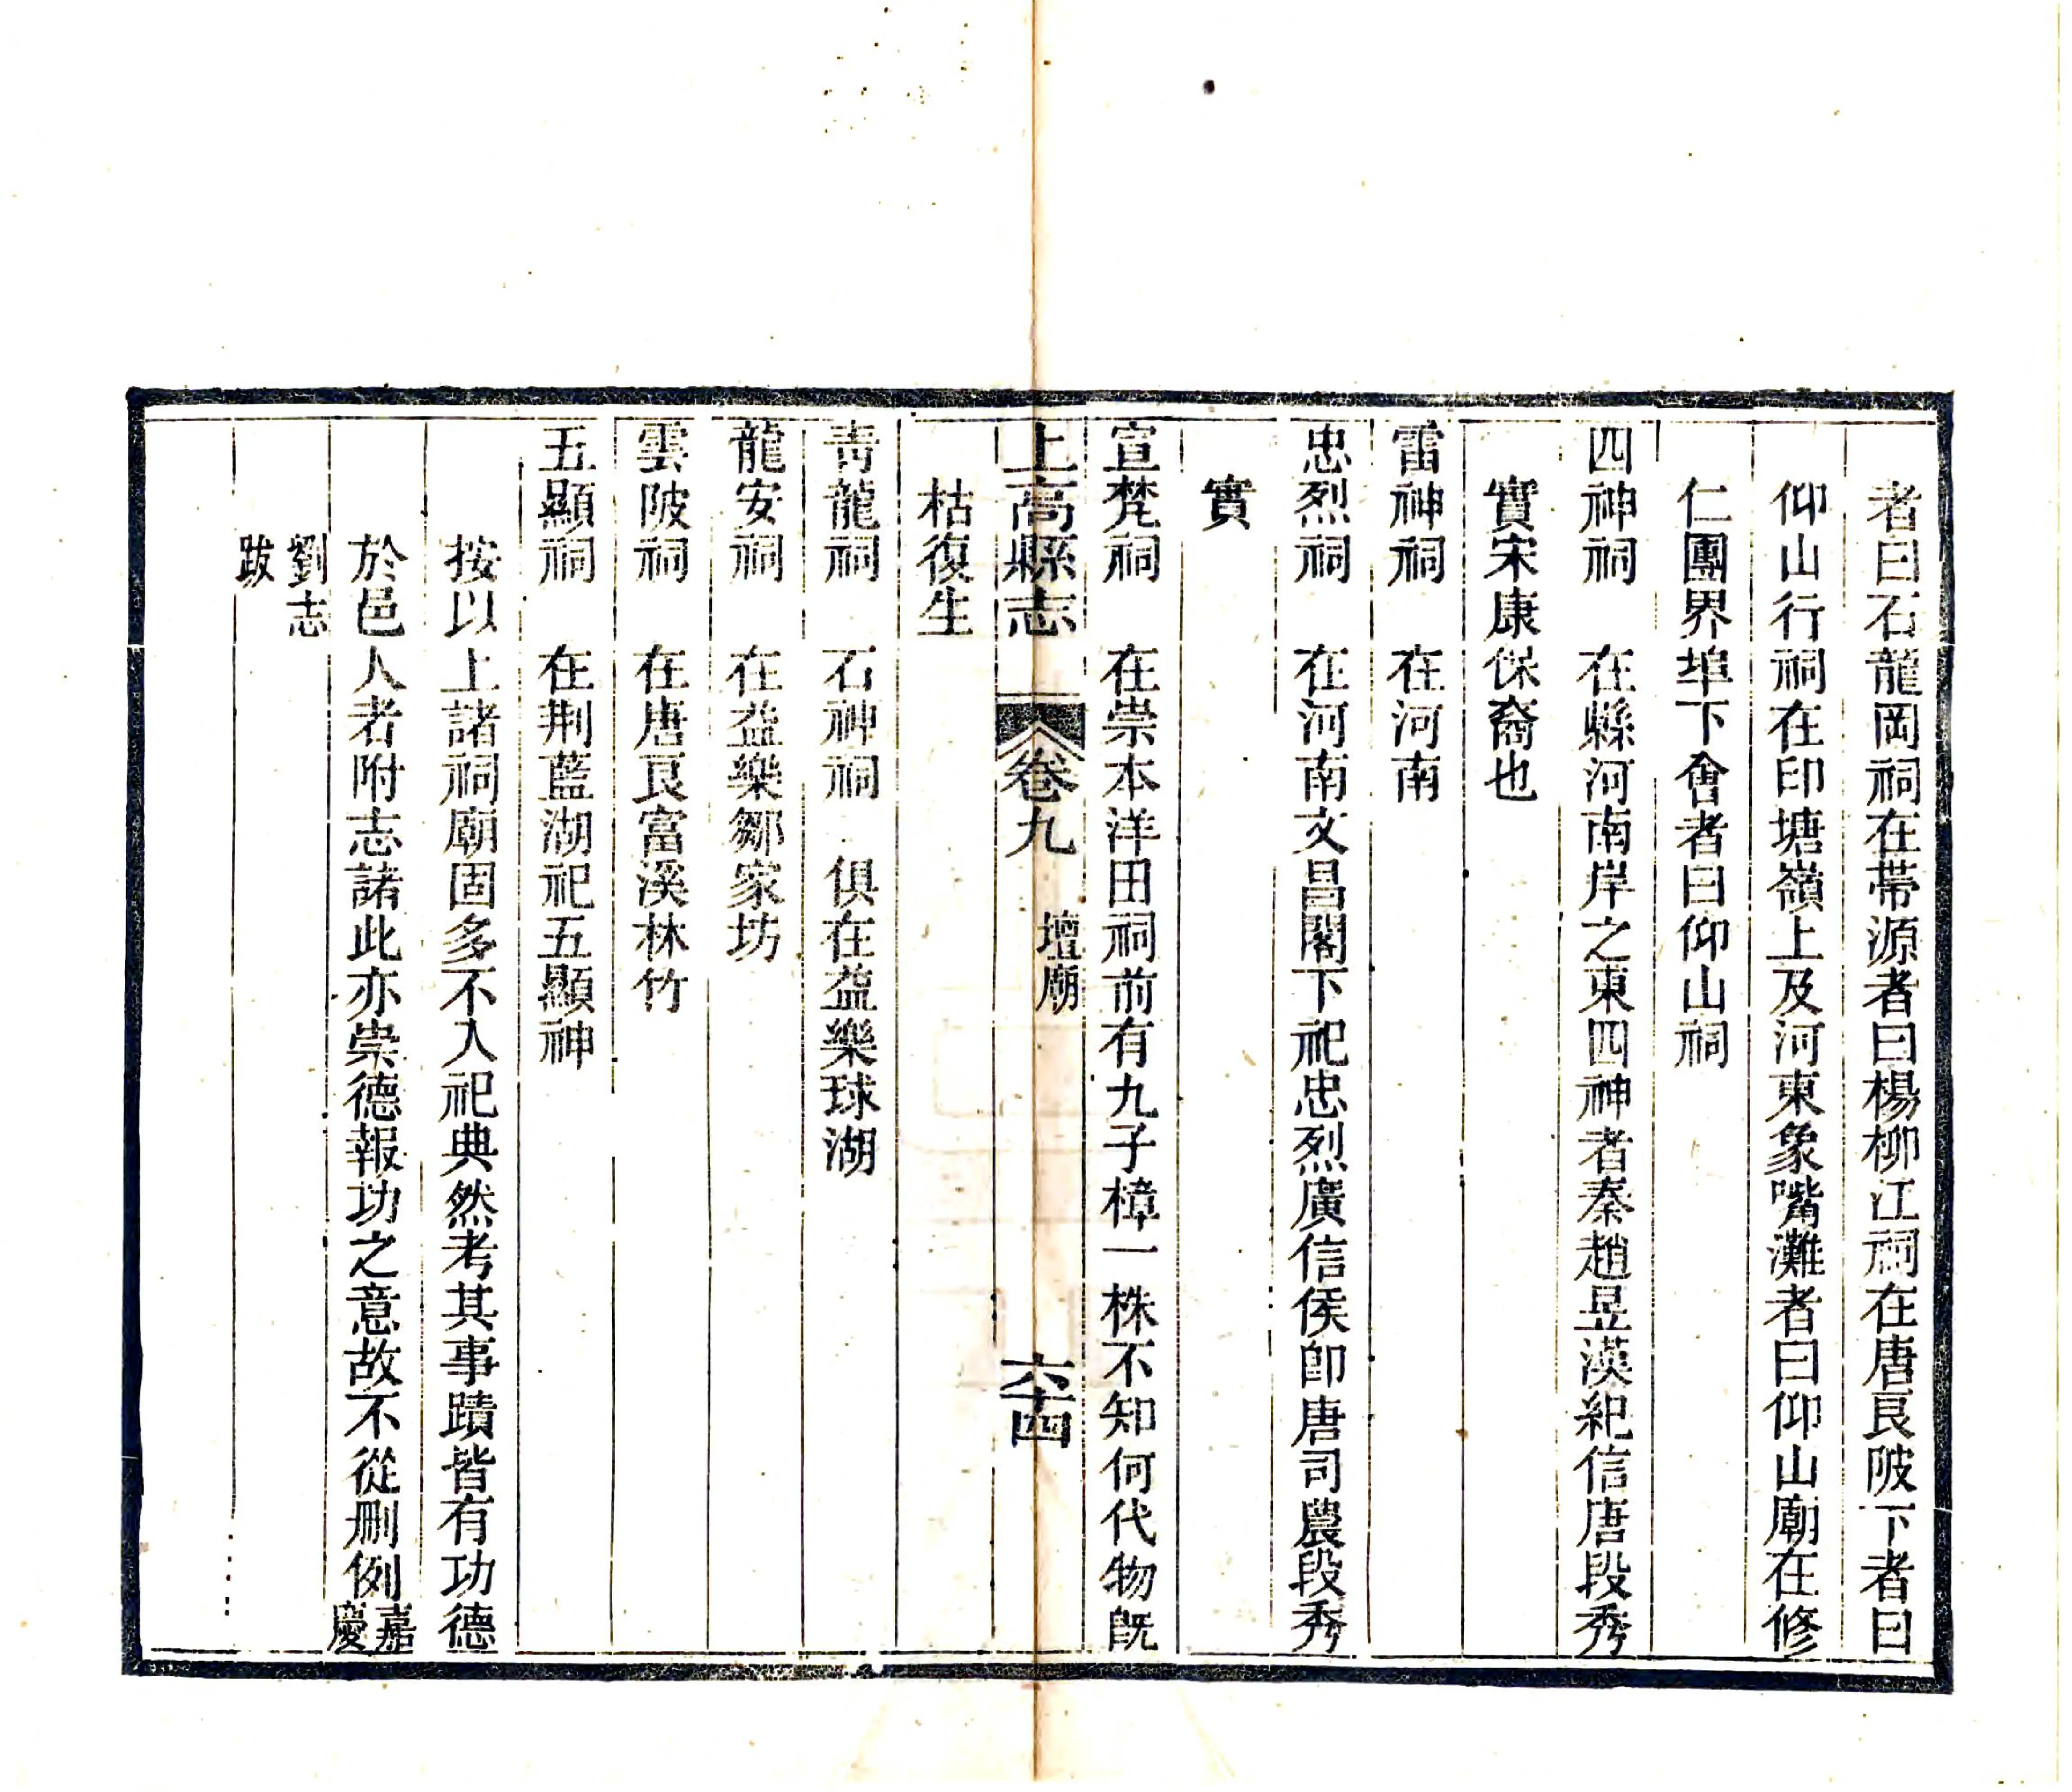 者曰石龍岡祠在蒂源者曰楊柳江祠在唐良陂下者曰
仰山行祠在印塘嶺上及河東象嘴灘者曰仰山廟在修
仁團界埠下會者曰仰山祠
四神祠　在縣河南岸之東四神者秦趙昱漢紀信唐段秀
實宋康保裔也
雷神祠　在河南
忠烈祠　在河南文昌閣下祀忠烈廣信侯卽唐司農段秀
實
宣梵祠　在崇本洋田祠前有九子樟一株不知何代物旣
上高縣志　卷九　壇廟　六十四
枯復生
靑龍祠　石神祠　俱在益樂球湖
龍安祠　在益樂鄒家坊
雲陂祠　在唐良富溪林竹
五顯祠　在荆藍湖祀五顯神
按以上諸祠廟固多不入祀典然考其事蹟皆有功德
於邑人者附志諸此亦崇德報功之意故不從刪例嘉慶
劉志
跋